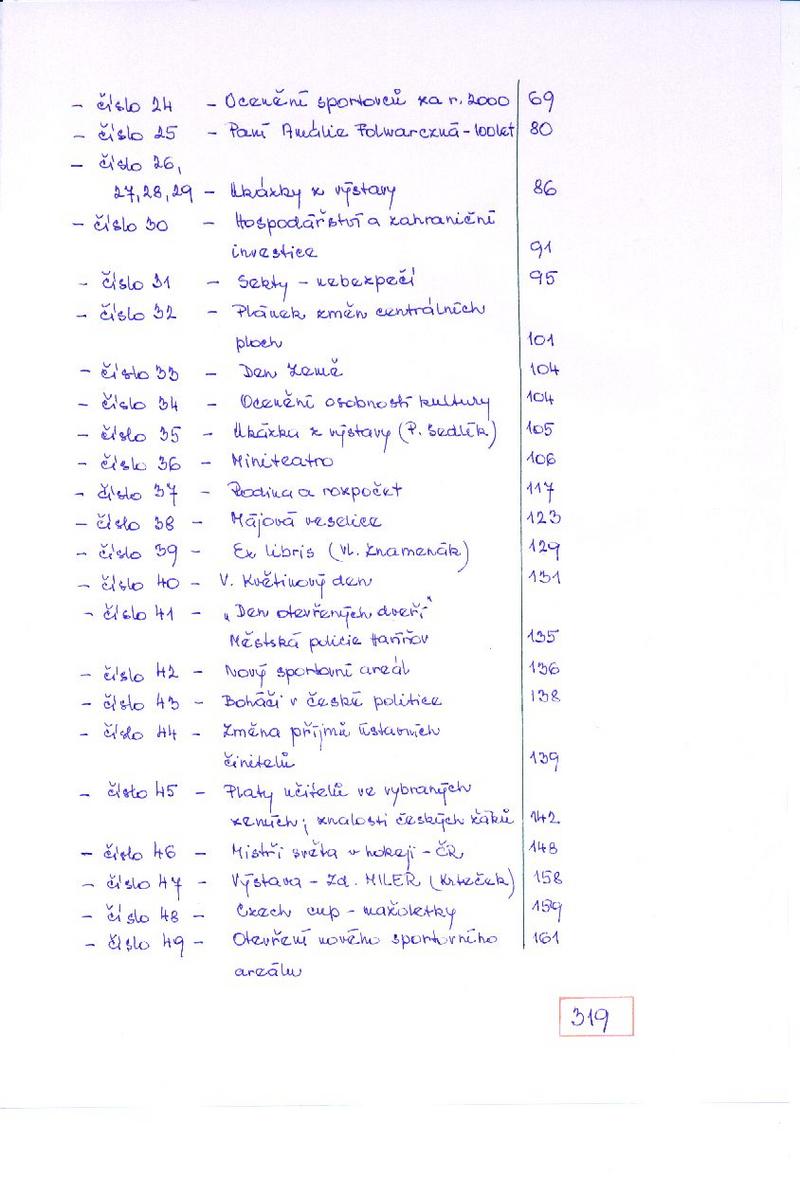 - číslo 24 - Ocenění sportovců za r. 2000 69
- číslo 25 - Paní Amálie Folwarczná - 100 let 80
- číslo 26,
27, 28, 29 - Ukázky z výstavy 86
- číslo 30 - Hospodářství a zahraniční
investice 91
- číslo 31 - Sekty - nebezpečí 95
- číslo 32 - Plánek změn centrálních
ploch 101
- číslo 33 - Den Země 104
- číslo 34 - Ocenění osobností kultury 104
- číslo 35 - Ukázka z výstavy (P. Sedlík) 105
- číslo 36 - Miniteatro 106
- číslo 37 - Rodina a rozpočet 117
- číslo 38 - Májová veselice 123
- číslo 39 - Ex libris (Vl. Znamenák) 129
- číslo 40 - V. Květinový den 131
- číslo 41 - „Den otevřených dveří"
Městská policie Havířov 135
- číslo 42 - Nový sportovní areál 136
- číslo 43 - Boháči v české politice 138
- číslo 44 - Změna příjmů ústavních
činitelů 139
- číslo 45 - Platy učitelů ve vybraných
zemích; znalosti českých žáků 142
- číslo 46 - Mistři světa v hokeji - ČR 148
- číslo 47 - Výstava - Zd. MILER (Krteček) 158
- číslo 48 - Czech cup - mažoretky 159
- číslo 49 - Otevření nového sportovního 161
areálu
319